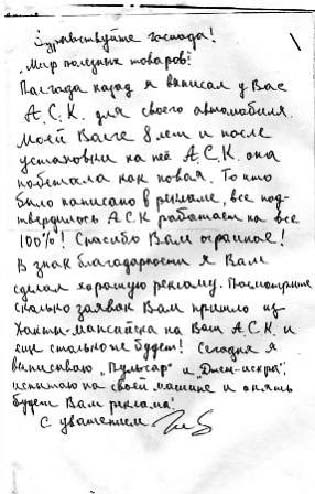 Здравствуйте господа!
"Мир полезных товаров"!
Полгода назад я выписал у Вас
А.С.К. для своего автомобиля.
Моей Волге 8 лет и после
установки на неё А.С.К. она
побежала как новая. То что
было написано в рекламе, все под-
твердилось А.С.К работает на все
100%! Спасибо Вам огромное!
В знак благодарности я Вам
сделал хорошую рекламу. Посмотрите
сколько заявок Вам пришло из
Ханты-Мансийска на Ваш А.С.К и
еще столько же будет! Сегодня я
выписываю "Пульсар" и "Джен-искра",
испытаю на своей машине и опять
будет Вам реклама!
С уважением